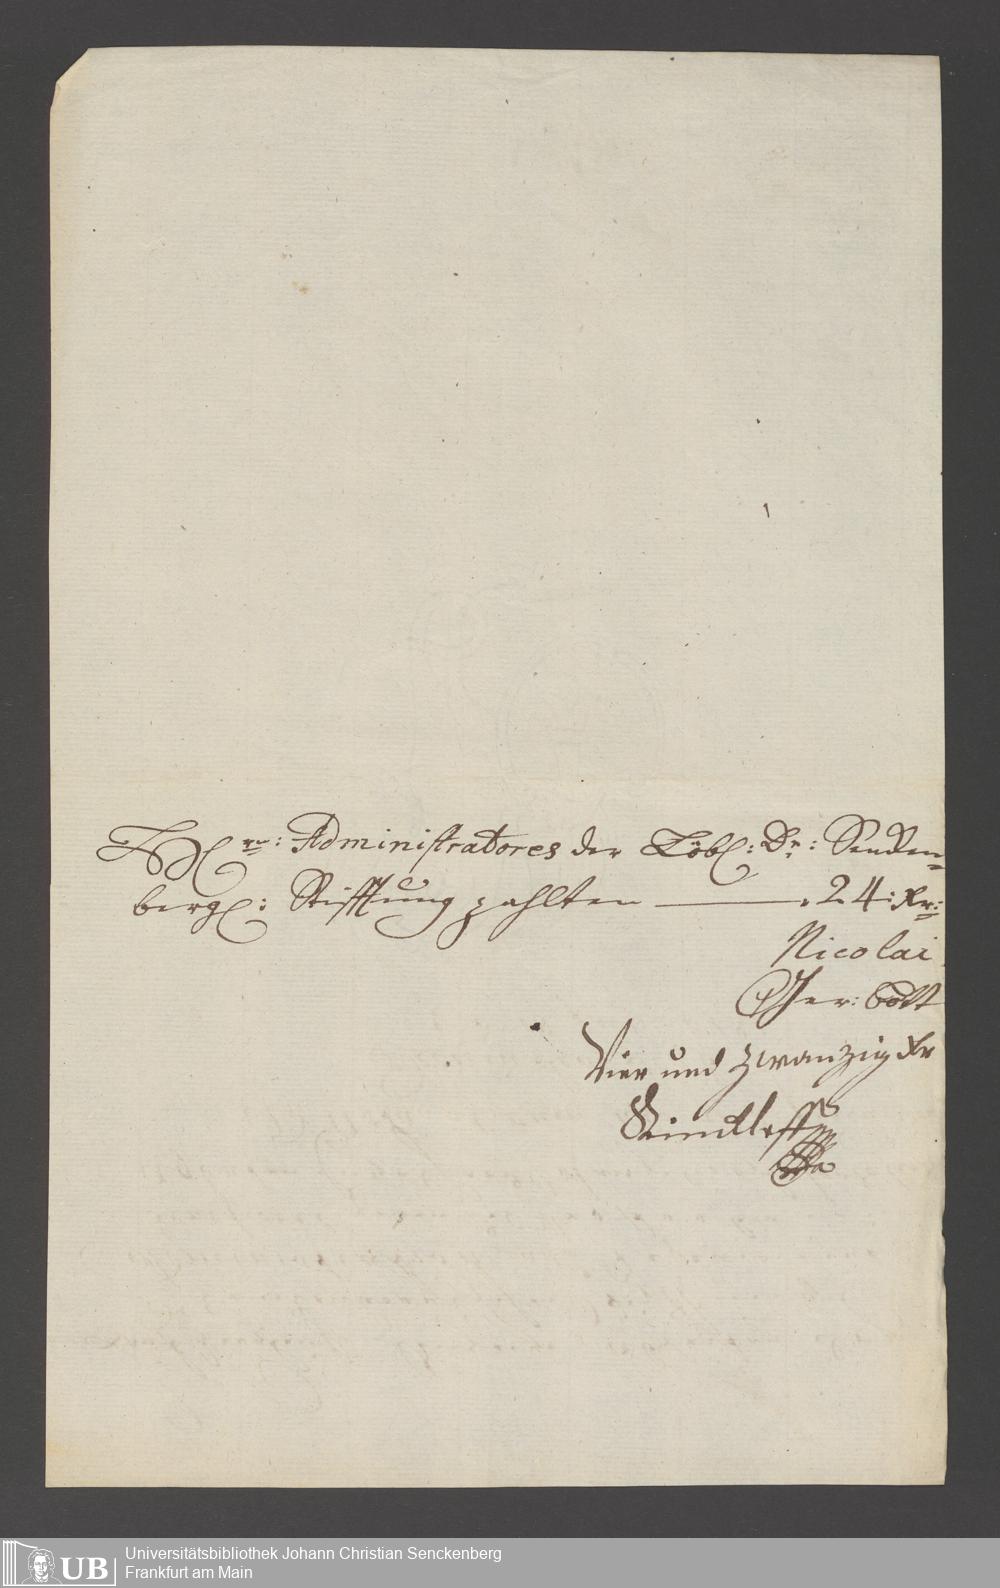 HE rn: Administratores der Löbl: Dr: Sencken=
bergl: Stifftung zahlten ——— 24: Xr:
Nicolai
Ger: Bott
Vier und zwanzig Xr
Universitätsbibliothek Johann Christian Senckenberg
Frankfurt am Main
UB